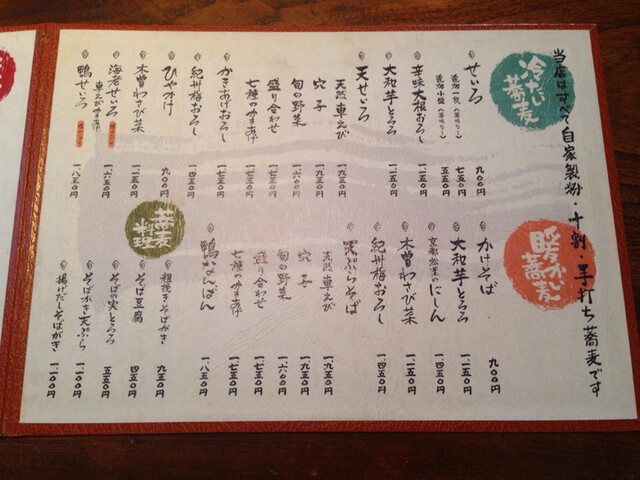 当店はすべて自家製粉・十割・手打ち蕎麦です
冷たい蕎麦
せいろ 九〇〇円
追加一枚(薬味なし) 七五〇円
追加小盛(薬味なし) 五五〇円
辛味大根おろし 一、一五〇円
大和芋とろろ 一、一五〇円
天せいろ
天然車えび 一、九五〇円
穴子 一、九五〇円
旬の野菜 一、六〇〇円
盛り合わせ 一、七五〇円
七種のかきあげ 一、七五〇円
かきあげおろし 一、七五〇円
紀州梅おろし 一、四五〇円
ひやかけ 九〇〇円
木曽わさび菜 一、一五〇円
海老せいろ 一、六五〇円
車えびかき揚げ
鴨せいろ 一、八五〇円
暖かい蕎麦
かけそば 九〇〇円
大和芋とろろ 一、一五〇円
京都松葉のにしん 一、四五〇円
木曽わさび菜 一、一五〇円
紀州梅おろし 一、四五〇円
天ぷらそば
天然車えび 一、九五〇円
穴子 一、九五〇円
旬の野菜 一、六〇〇円
盛り合わせ 一、七五〇円
七種のかきあげ 一、七五〇円
鴨なんばん 一、八五〇円
蕎麦料理
粗挽きそばがき 九五〇円
そば豆腐 四五〇円
そばの実とろろ 五五〇円
そばがき天ぷら 一、一〇〇円
揚げだしそばがき 一、一〇〇円